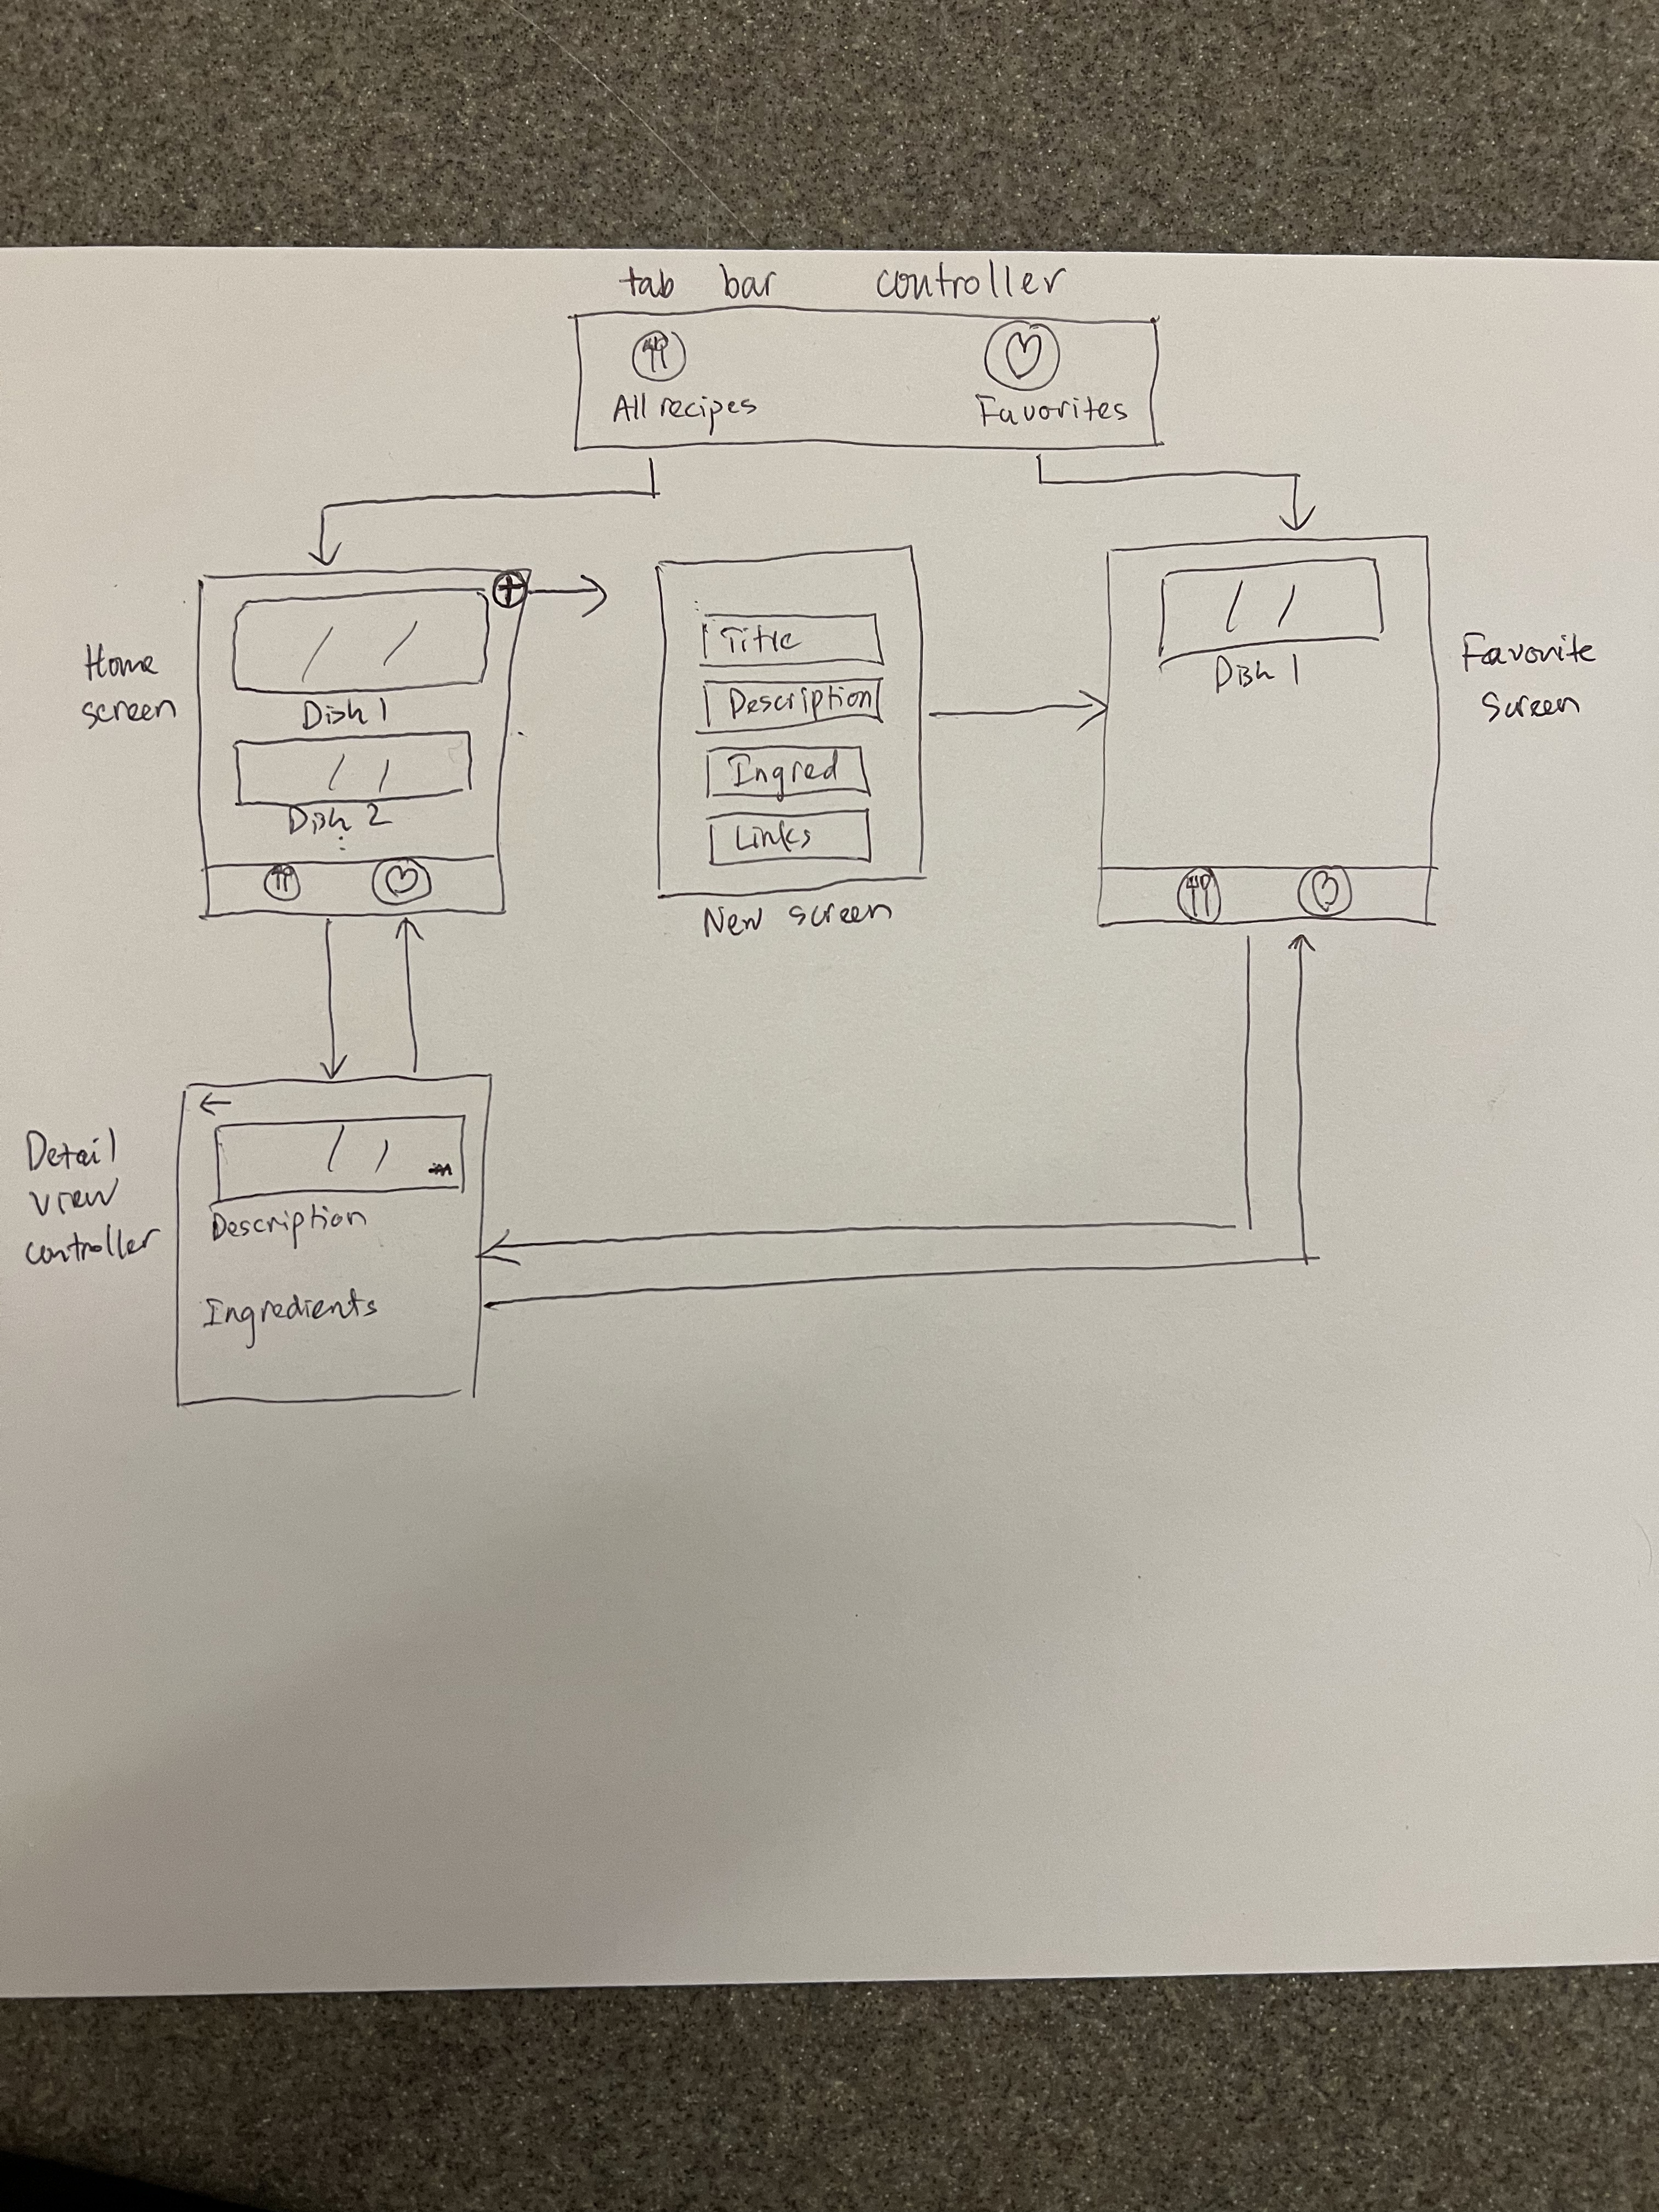 tab bar controller
All recipes
Favorites
Home
screen
Dish 1
Dish 2
Title
Description
Ingred
Links
New screen
Dish 1
Favorite
Screen
Detail
view
controller
Description
Ingredients